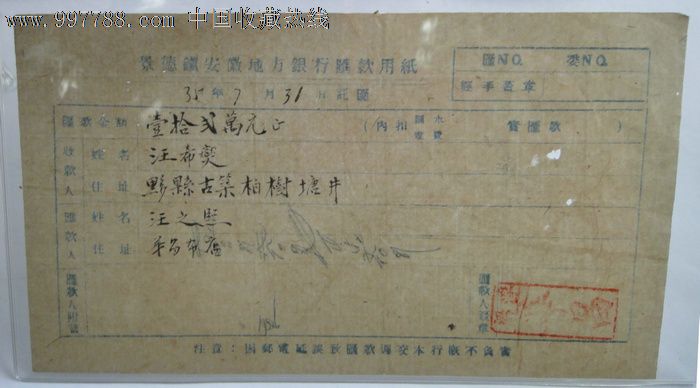 www.997788.com 中国收藏热线
景德鎮安徽地方銀行匯款用紙
匯NO. 委NO.
經手蓋章
35年7月31日託匯
匯款金額 壹拾弍萬元正 (內扣匯水電費 實匯款 )
收款人 姓名 汪希燮
住址 黟縣古築柏樹塘井
匯款人 姓名 汪之熙
住址
匯款人附號
匯款人蓋章
注意:因郵電延誤致匯款遲交本行概不負責